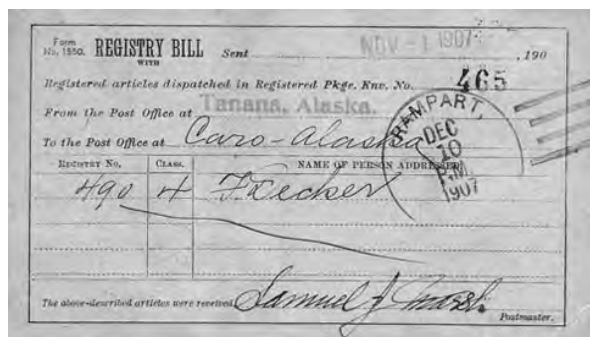 Form No. 1550. REGISTRY BILL WITH Sent NOV - 1 1907 , 190
Registered articles dispatched in Registered Pkge. Env. No. 465
From the Post Office at Tanana, Alaska.
To the Post Office at Caro - Alaska
RAMPART,
DEC
10
P.M.
1907
REGISTRY No. CLASS. NAME OF PERSON ADDRESSED
490 4
The above-described articles were received. Samuel J Marsh
Postmaster.